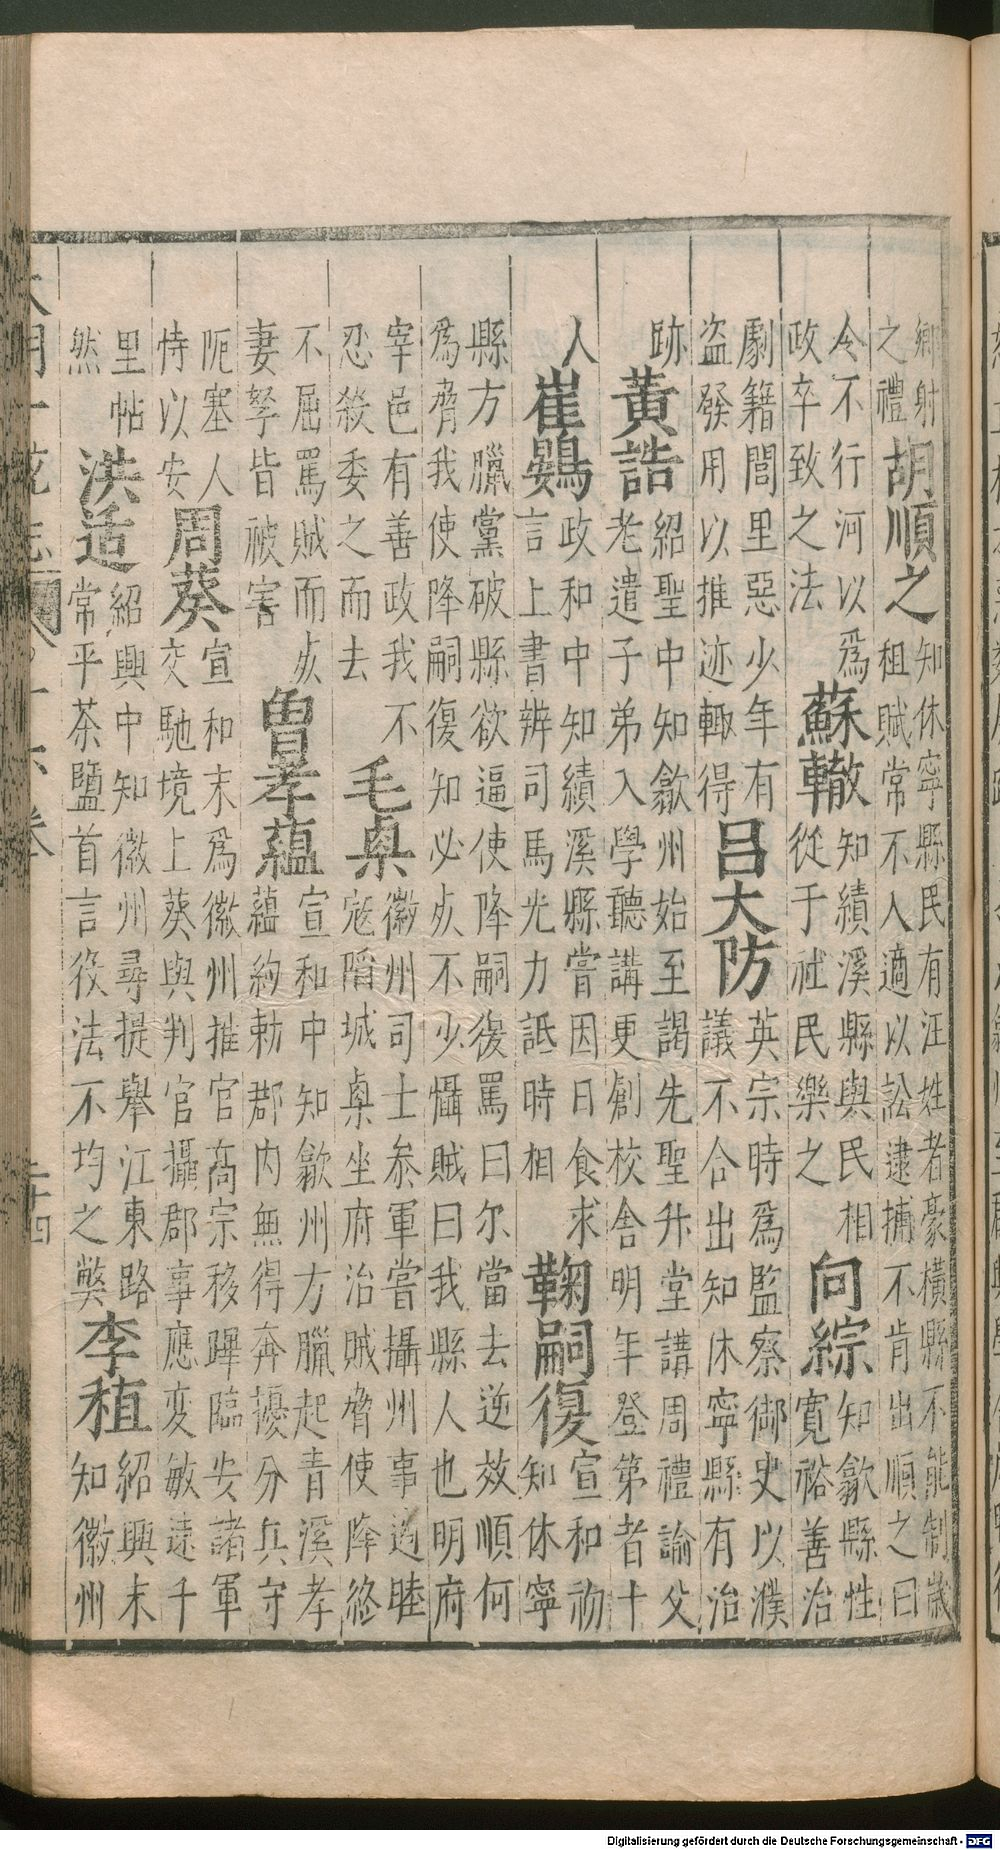 鄉射
之禮
胡順之
知休寧縣民有汪姓者豪橫縣不能制歲
租賦常不入適以訟逮捕不肯出順之曰
令不行河以爲
政卒致之法
蘇轍
知績溪縣與民相
從于社民樂之
向綜
知歙縣性
寬裕善治
劇籍閭里惡少年有
盜發用以推迹輙得
呂大防
英宗時爲監察御史以濮
議不合出知休寧縣有治
跡
黃誥
紹聖中知歙州始至謁先聖升堂講周禮論父
老遣子弟入學聽講更創校舍明年登第者十
人
崔鷃
政和中知績溪縣嘗因日食求
言上書辨司馬光力詆時相
鞠嗣復
宣和初
知休寧
縣方臘黨破縣欲逼使降嗣復罵曰尔當去逆效順何
爲脅我使降嗣復知必死不少懾賊曰我縣人也明府
宰邑有善政我不
忍殺委之而去
毛㮚
徽州司士叅軍嘗攝州事適睦
寇䧟城㮚坐府治賊脅使降終
不屈罵賊而死
妻孥皆被害
曾孝蘊
宣和中知歙州方臘起青溪孝
蘊約勅郡内無得奔擾分兵守
阨塞人
恃以安
周葵
宣和末爲徽州推官高宗移蹕臨安諸軍
交馳境上葵與判官攝郡事應变敏速千
里帖
然
洪适
紹興中知徽州尋提舉江東路
常平茶鹽首言役法不均之弊
李稙
紹興末
知徽州
Digitalisierung gefördert durch die Deutsche Forschungsgemeinschaft - DFG